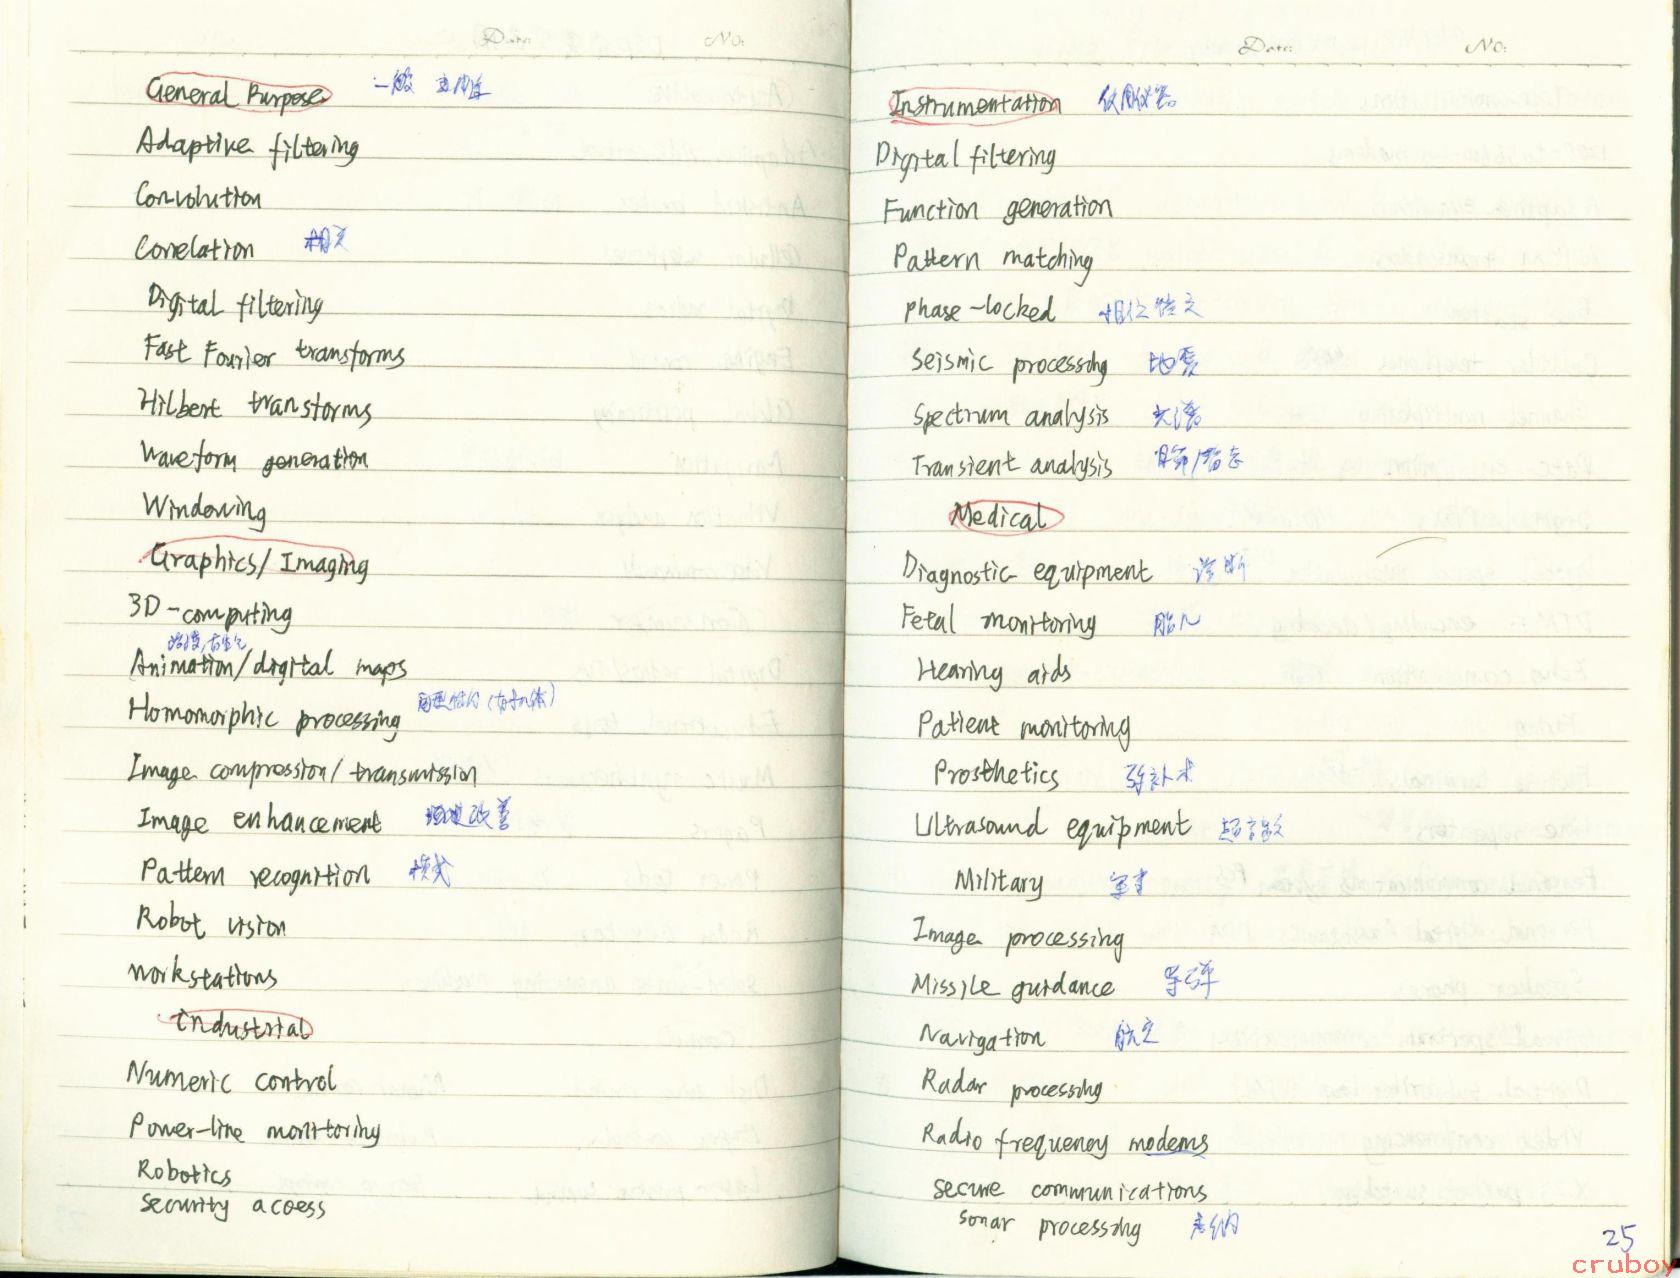 Date: No:
General Purpose 一般
Adaptive filtering
Convolution
Correlation 相关
Digital filtering
Fast Fourier transforms
Hilbert transforms
Waveform generation
Windowing
Graphics/Imaging
3D-computing
Animation/digital maps
Homomorphic processing
Image compression/transmission
Image enhancement 改善
Pattern recognition 模式
Robot vision
Workstations
Industrial
Numeric control
Power-line monitoring
Robotics
Security access
Date: No:
Instrumentation 仪器
Digital filtering
Function generation
Pattern matching
Phase-locked 相位
Seismic processing 地震
Spectrum analysis 光谱
Transient analysis
Medical
Diagnostic equipment 诊断
Fetal monitoring 胎儿
Hearing aids
Patient monitoring
Prosthetics 弥补术
Ultrasound equipment 超音波
Military 军事
Image processing
Missile guidance 导弹
Navigation 航空
Radar processing
Radio frequency modems
Secure communications
Sonar processing 声纳
25
cruboy